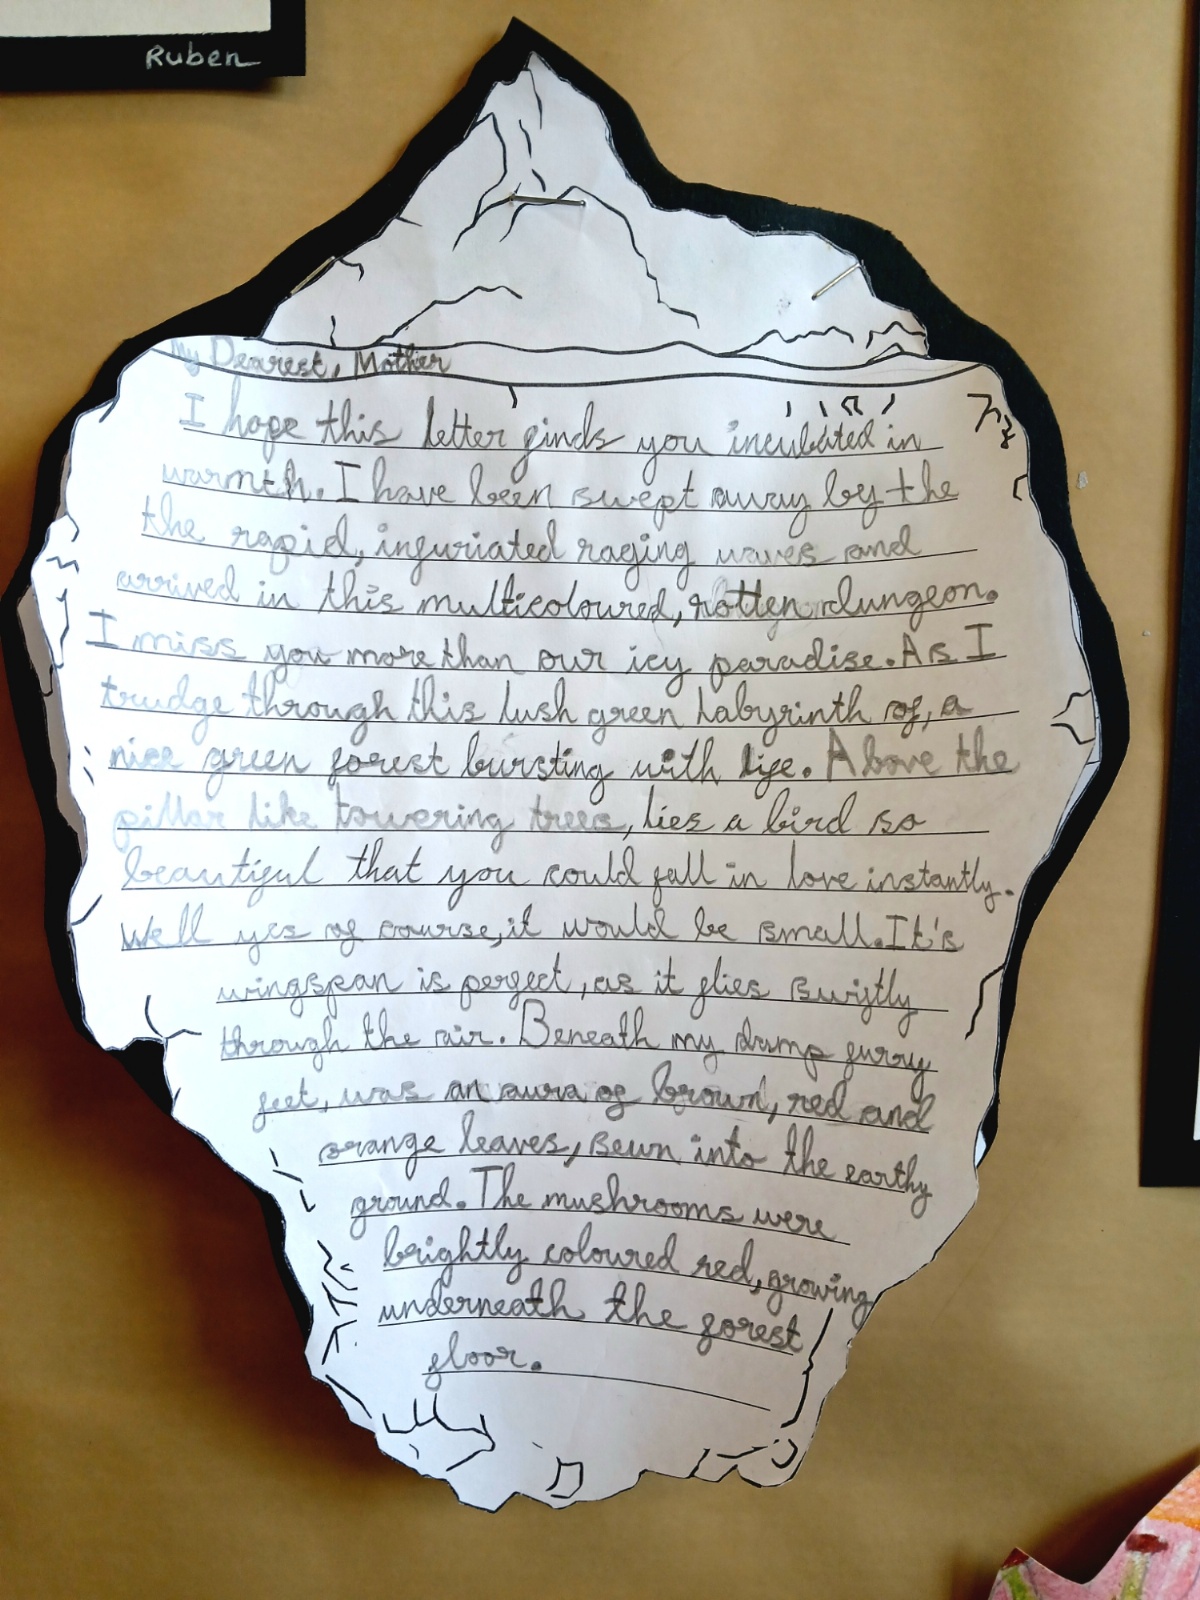 Ruben
My Dearest, Mother
I hope this letter finds you incubated in
warmth. I have been swept away by the
the rapid, infuriated raging waves and
arrived in this multicoloured, rotten dungeon.
I miss you more than our icy paradise. As I
trudge through this lush green labyrinth of, a
nice green forest bursting with life. Above the
pillar like towering trees, lies a bird so
beautiful that you could fall in love instantly.
Well yes of course, it would be small. It's
wingspan is perfect, as it flies swiftly
through the air. Beneath my damp furry
feet, was an aura of brown, red and
orange leaves, sewn into the earthy
ground. The mushrooms were
brightly coloured red, growing
underneath the forest
floor.